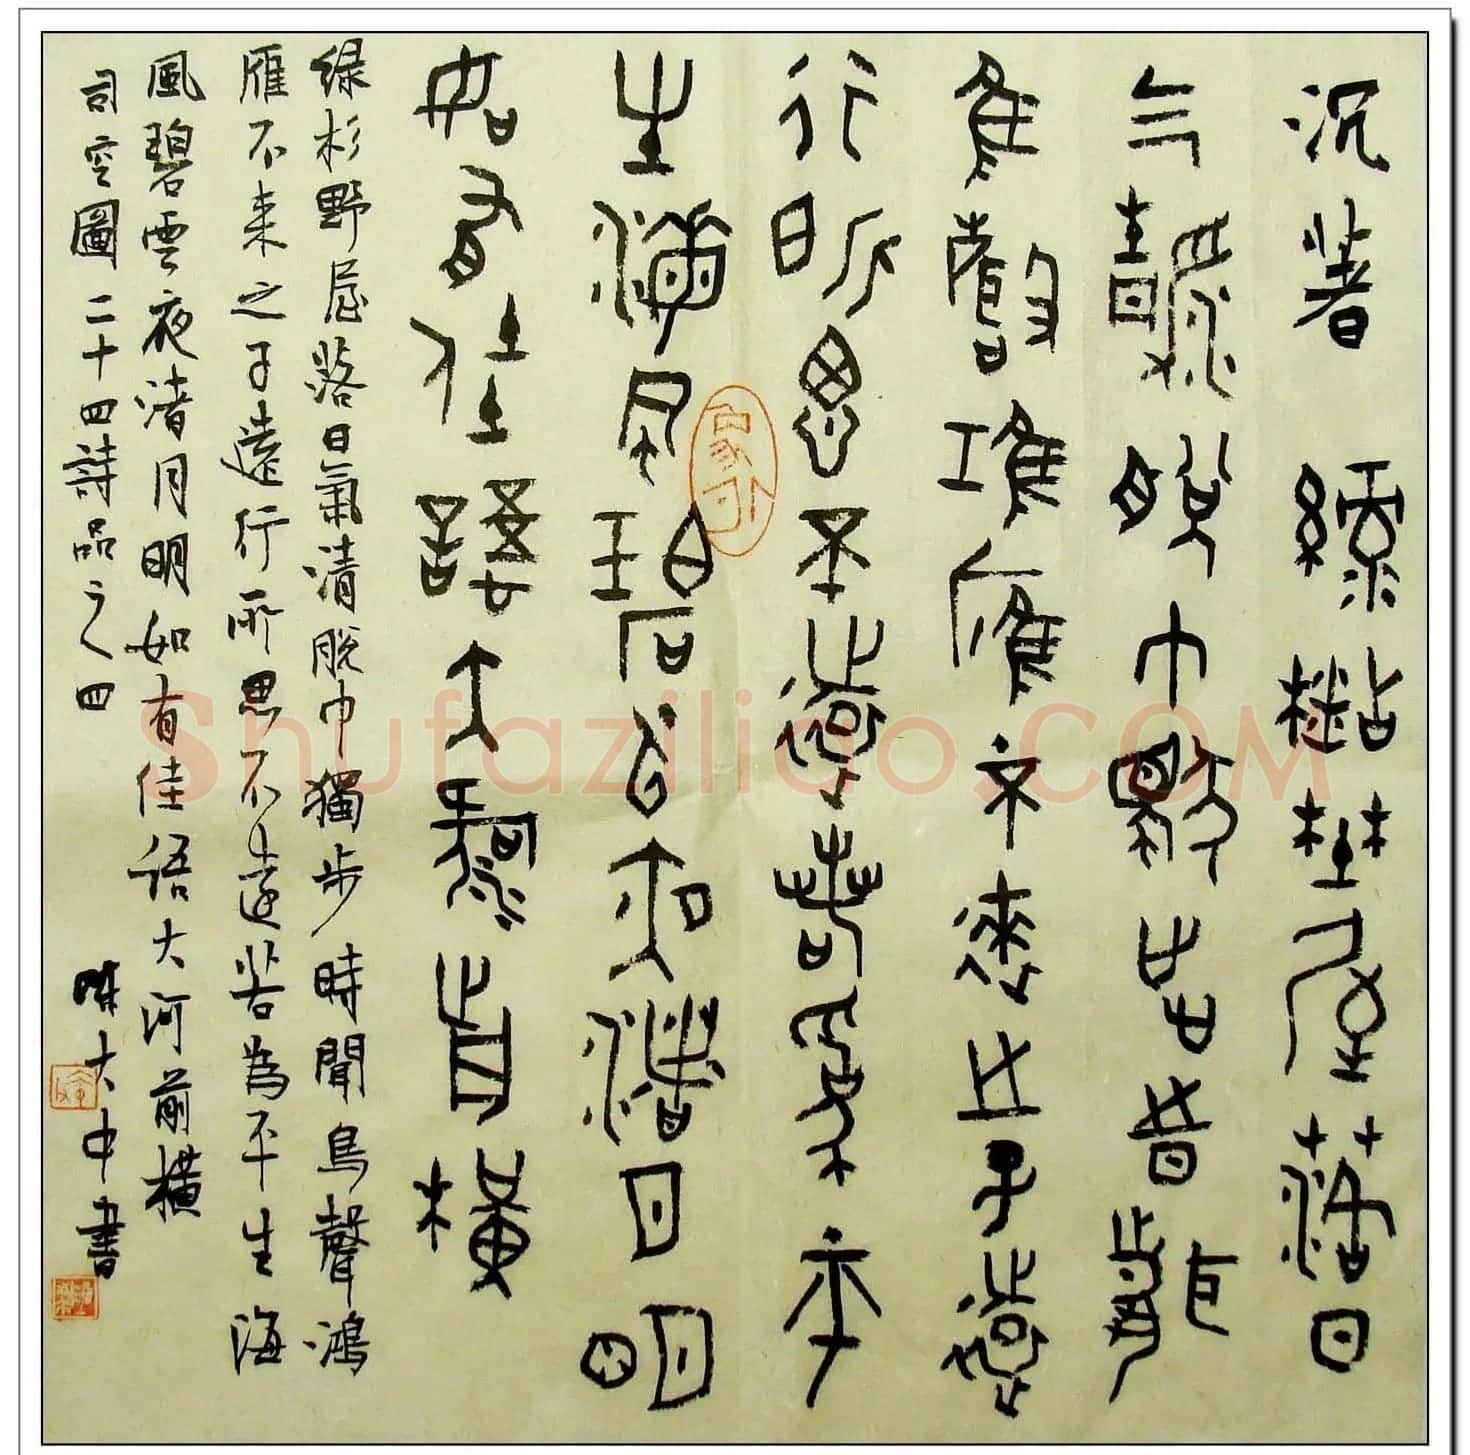 沉著 綠杉野屋落日
气清脫巾獨步時聞
鳥聲鴻雁不來之子遠
行所思不遠若為平
生海風碧雲夜渚月明
如有佳語大河前橫
绿杉野屋落日氣清脫巾獨步時聞鳥聲鴻
雁不来之子遠行所思不遠若為平生海
風碧雲夜渚月明如有佳語大河前橫
司空圖二十四詩品之四 陳大中書
Shufaziliao.COM